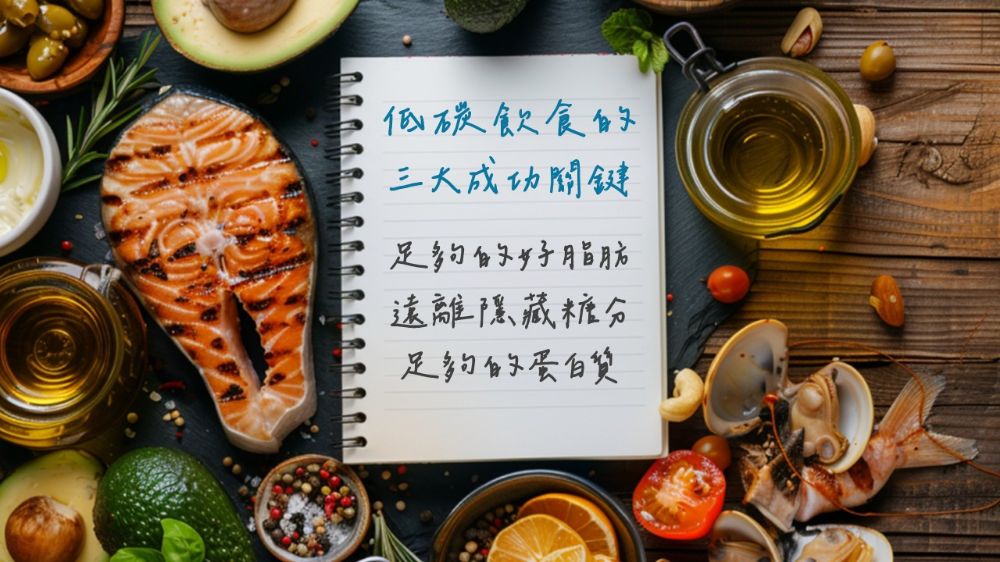 低碳飲食的
三大成功關鍵
足夠的好脂肪
遠離隱藏糖分
足夠的蛋白質